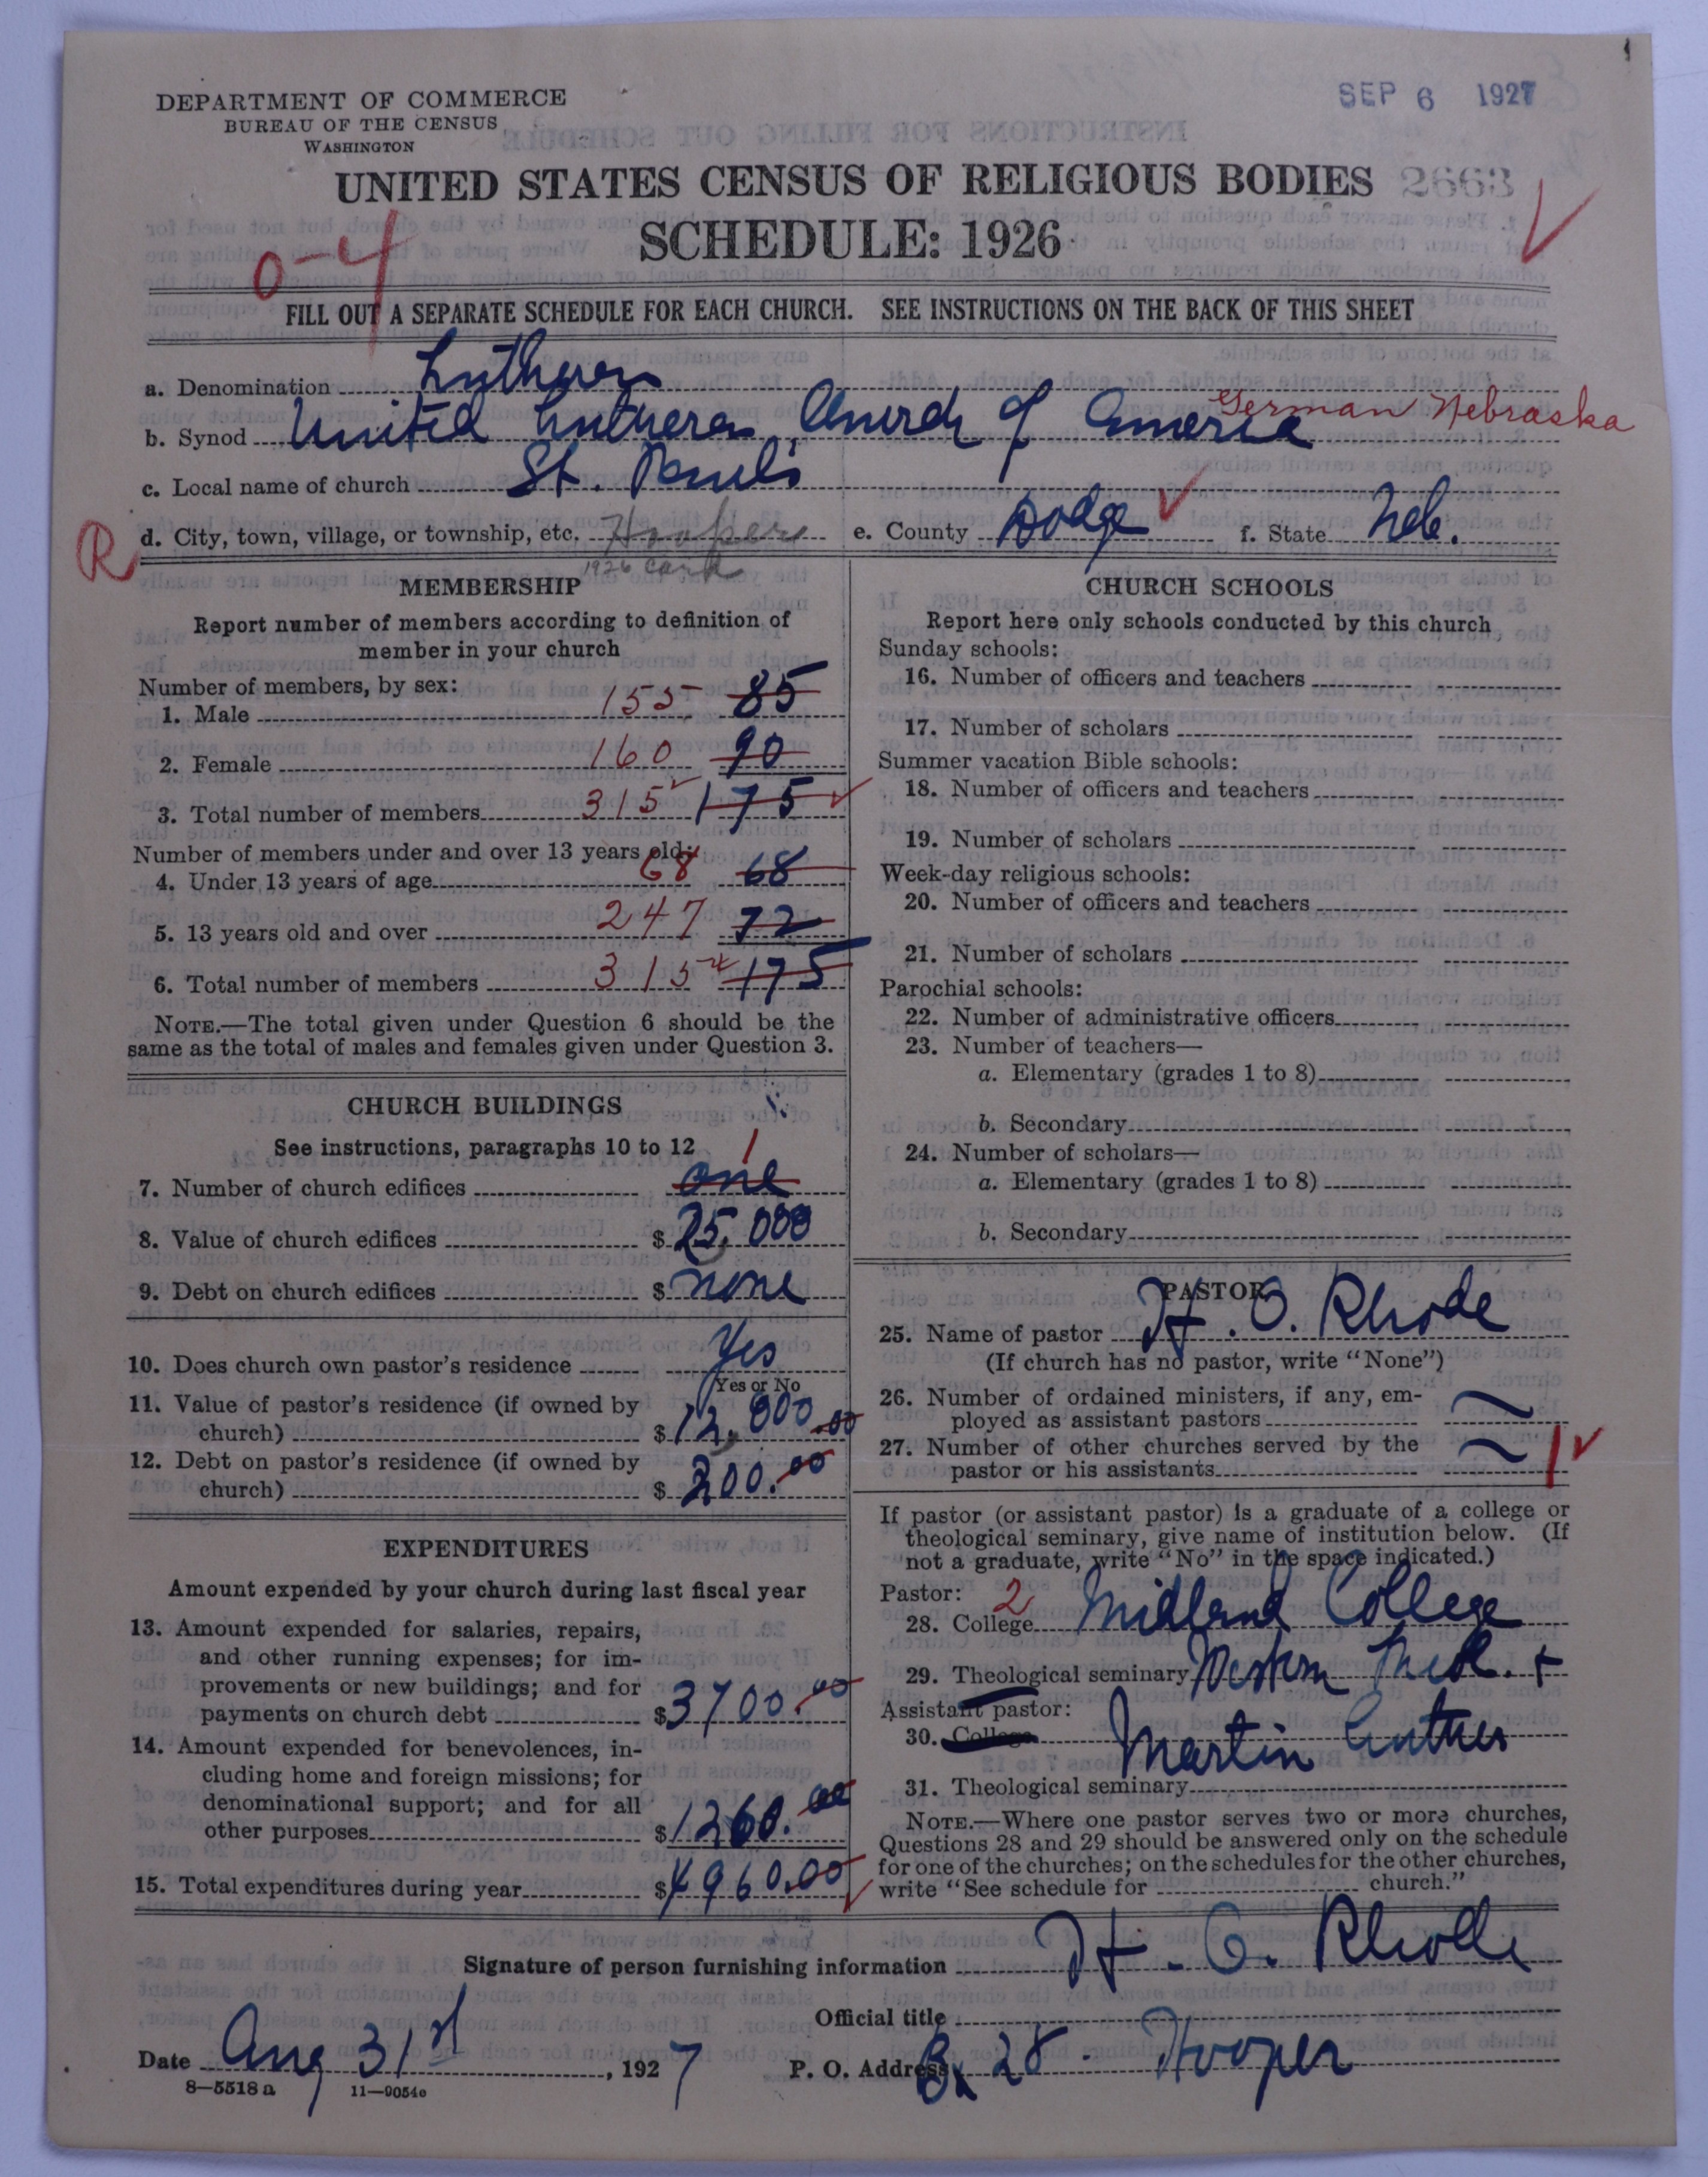 DEPARTMENT OF COMMERCE
BUREAU OF THE CENSUS
WASHINGTON
SEP 6 1927
UNITED STATES CENSUS OF RELIGIOUS BODIES 2663
SCHEDULE: 1926
0-4
FILL OUT A SEPARATE SCHEDULE FOR EACH CHURCH. SEE INSTRUCTIONS ON THE BACK OF THIS SHEET
a. Denomination Lutheran
b. Synod United Lutheran Church of America German Nebraska
c. Local name of church St. Paul's
R d. City, town, village, or township, etc. Hooper e. County Dodge f. State Neb.
1926 card
MEMBERSHIP
Report number of members according to definition of
member in your church
Number of members, by sex:
1. Male 155 85
2. Female 160 90
3. Total number of members 315 175
Number of members under and over 13 years old:
4. Under 13 years of age 68 68
5. 13 years old and over 247 72
6. Total number of members 315 175
NOTE.—The total given under Question 6 should be the
same as the total of males and females given under Question 3.
CHURCH BUILDINGS
See instructions, paragraphs 10 to 12
7. Number of church edifices one 1
8. Value of church edifices $25,000
9. Debt on church edifices $none
10. Does church own pastor's residence Yes
Yes or No
11. Value of pastor's residence (if owned by
church) $12,000.00
12. Debt on pastor's residence (if owned by
church) $200.00
EXPENDITURES
Amount expended by your church during last fiscal year
13. Amount expended for salaries, repairs,
and other running expenses; for im-
provements or new buildings; and for
payments on church debt $3700.00
14. Amount expended for benevolences, in-
cluding home and foreign missions; for
denominational support; and for all
other purposes $1260.00
15. Total expenditures during year $4960.00
CHURCH SCHOOLS
Report here only schools conducted by this church
Sunday schools:
16. Number of officers and teachers
17. Number of scholars
Summer vacation Bible schools:
18. Number of officers and teachers
19. Number of scholars
Week-day religious schools:
20. Number of officers and teachers
21. Number of scholars
Parochial schools:
22. Number of administrative officers
23. Number of teachers—
a. Elementary (grades 1 to 8)
b. Secondary
24. Number of scholars—
a. Elementary (grades 1 to 8)
b. Secondary
PASTOR
25. Name of pastor H. O. Rhode
(If church has no pastor, write "None")
26. Number of ordained ministers, if any, em-
ployed as assistant pastors
27. Number of other churches served by the
pastor or his assistants 1
If pastor (or assistant pastor) is a graduate of a college or
theological seminary, give name of institution below. (If
not a graduate, write "No" in the space indicated.)
Pastor: 2
28. College Midland College
29. Theological seminary Western +
Assistant pastor:
30. College Martin Luther
31. Theological seminary
NOTE.—Where one pastor serves two or more churches,
Questions 28 and 29 should be answered only on the schedule
for one of the churches; on the schedules for the other churches,
write "See schedule for church."
Signature of person furnishing information H. O. Rhode
Official title
Date Aug 31st, 1927 P. O. Address Bx 28 - Hooper
8-5518 a 11-9054c